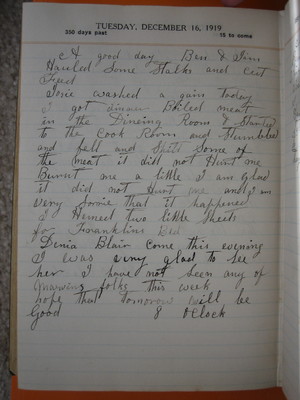 TUESDAY, DECEMBER 16, 1919
350 days past 15 to come
a good day Ben & Jim
Hauled Some Stalks and cut
Feed
washed a gain today
I got dinner Boiled meat
in the Dineing Room & Started
to the Cook Room and Stumbled
and fell and Spilt Some of
the meat it did not Hurt me
Burnt me a little I am glad
it did not Hurt me and I am
very Sorrie that it happened
I Hemed two little Sheets
for Franklins Bed
Denia Blair come this evening
I was very glad to See
her I have not Seen any of
Marvins folks this week
hope that tomorrow will be
Good 8 OClock